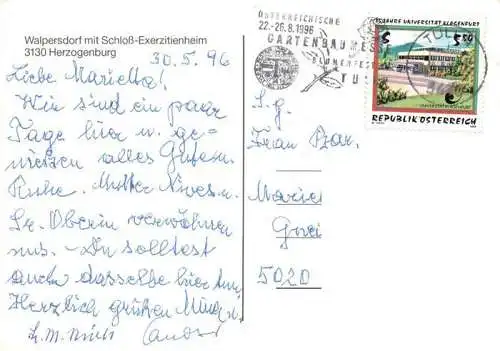 Walpersdorf mit Schloß-Exerzitienheim
3130 Herzogenburg
30.5.96
Liebe Marietta!
Wir sind ein paar
Tage hier u. ge-
nießen alles Gute u.
Ruhe. Mutter Nives u.
Sr. Oberin verwöhnen
uns. – Du solltest
auch dasselbe hier tun.
Herzlich grüßen
ÖSTERREICHISCHE
22.-26.8.1996
GARTENBAUMESSE
BLUMENFEST
TUL
JAHRE UNIVERSITÄT KLAGENFURT
S 5.50
REPUBLIK ÖSTERREICH
TUL
S. g.
Frau
Maria
5020